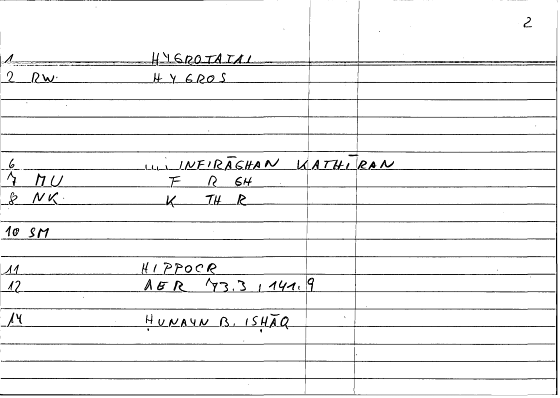 2
1 HYGROTATAI
2 RW. HYGROS
6 .... INFIRĀGHAN KATHĪRAN
7 MU F R GH
8 NK K TH R
10 SM
11 HIPPOCR
12 AER 73.3, 141.9
14 ḤUNAYN B. ISḤĀQ